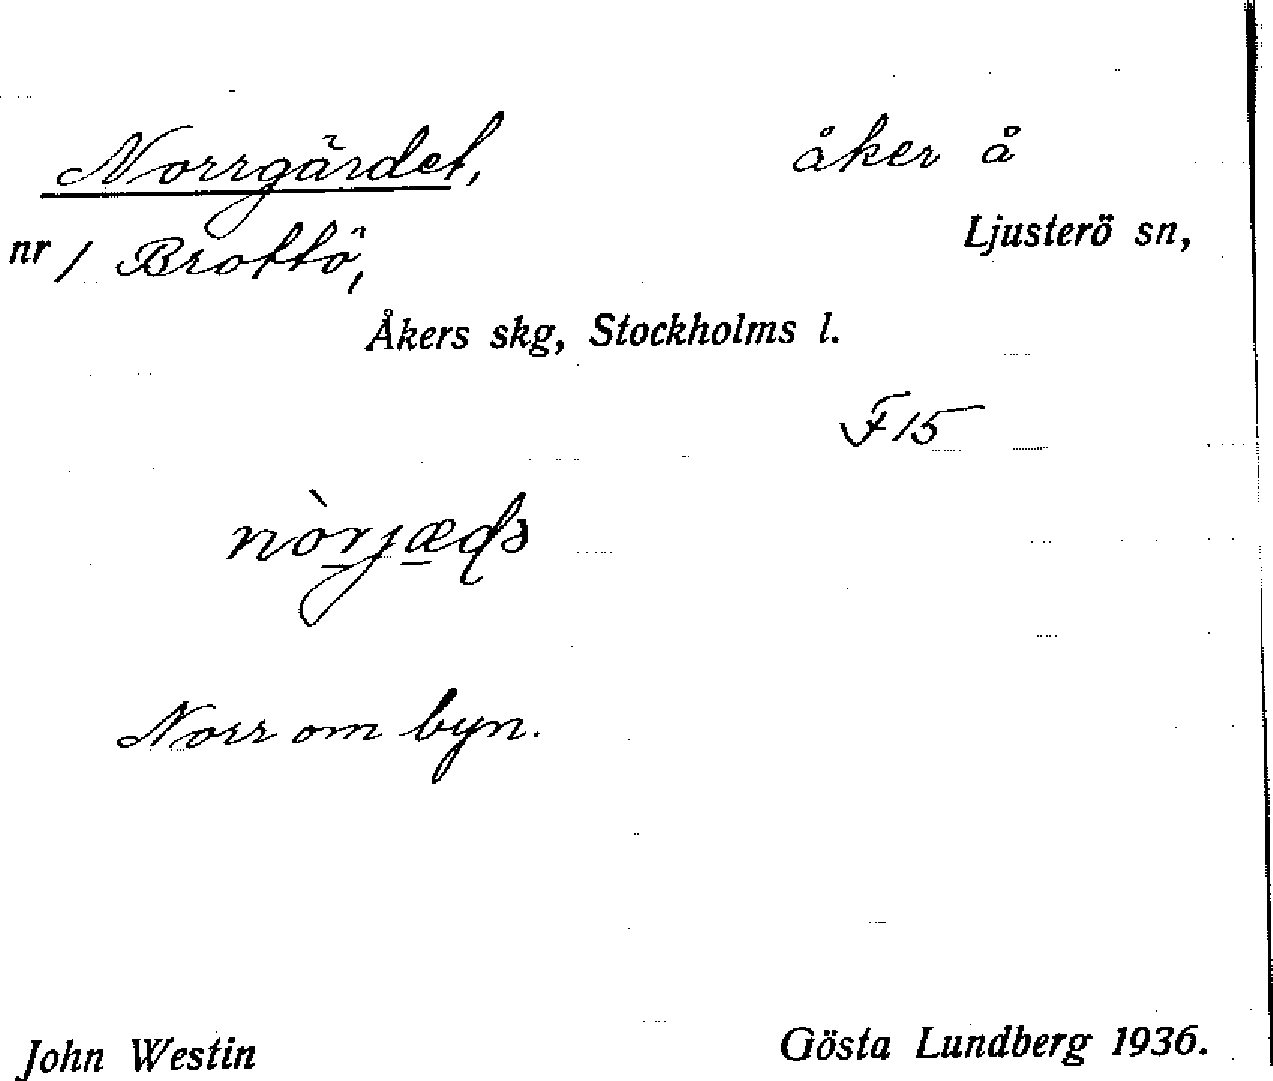 Norrgärdet, åker å
nr 1 Brottö, Ljusterö sn,
Åkers skg, Stockholms l.
F 15
Norr om byn.
John Westin Gösta Lundberg 1936.